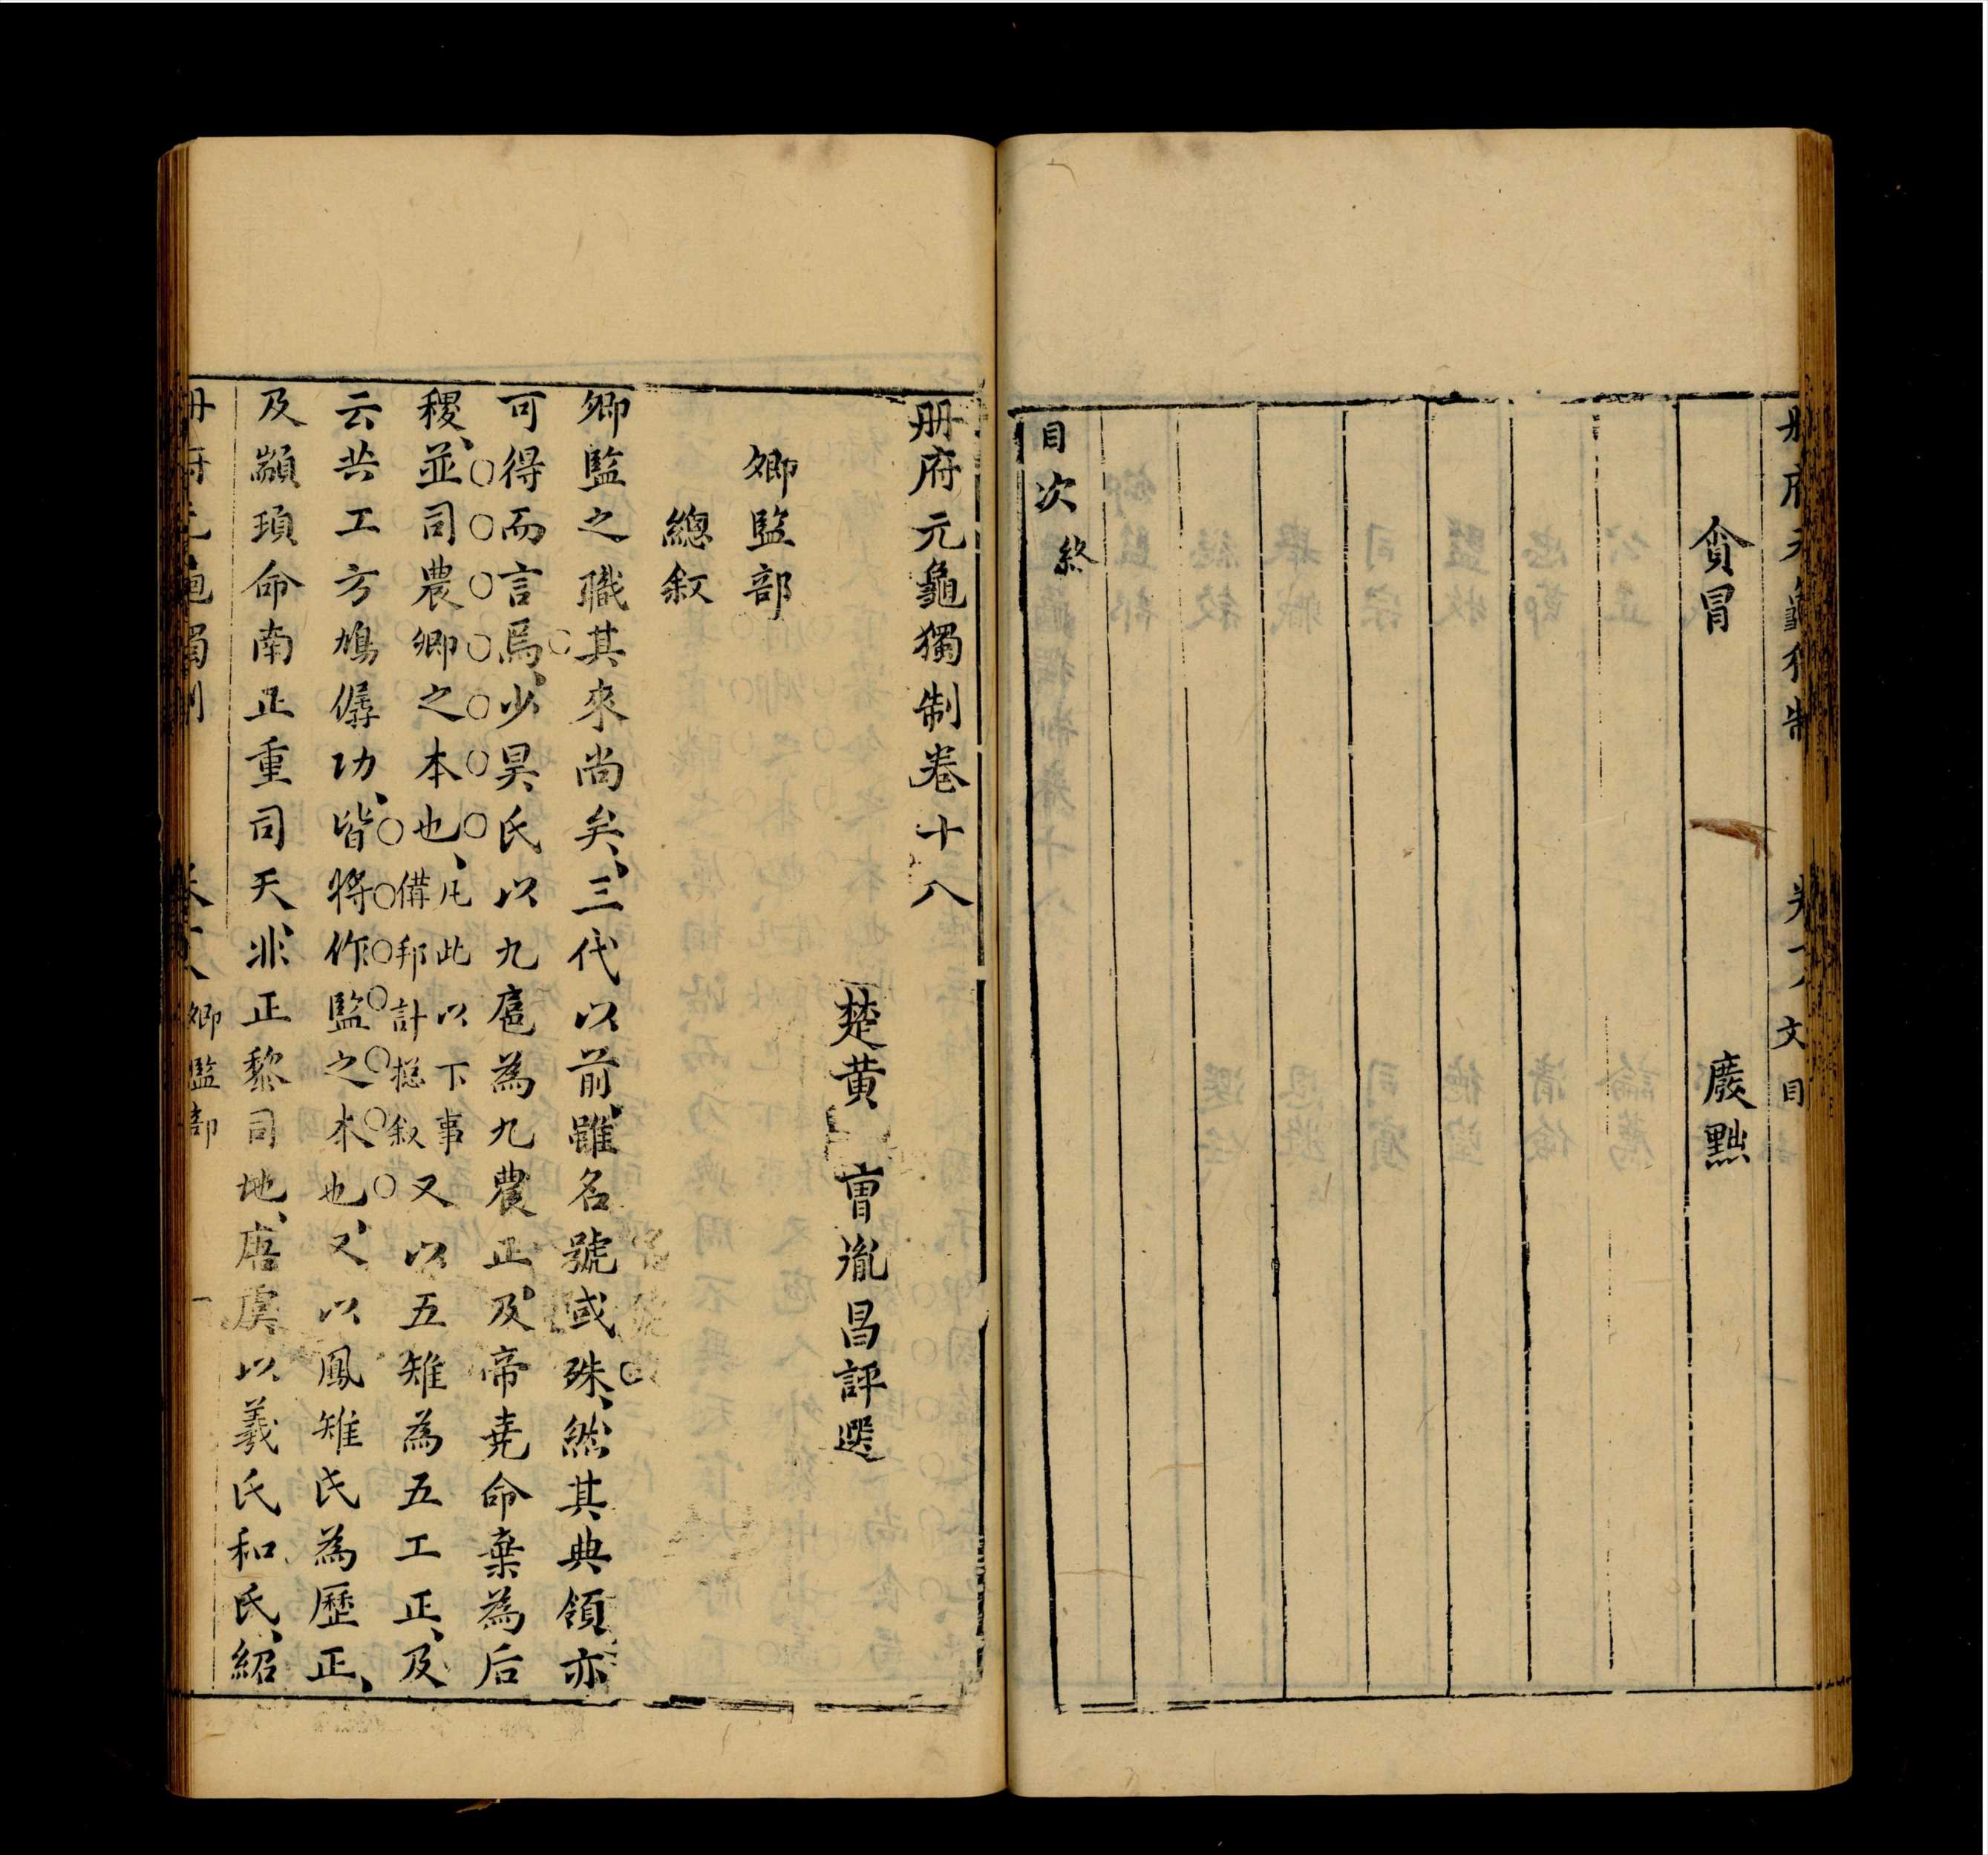 貪冒　廢黜
目次終
册府元龜獨制卷十八
楚黃　曹胤昌評選
卿監部
總叙
卿監之職其來尚矣、三代以前、雖名號或殊、然其典領亦
可得而言焉、少昊氏以九扈為九農正、及帝堯命棄為后
稷、並司農卿之本也、凡此以下事備邦計捴叙又以五雉為五工正、及
云共工方鳩僝功、皆將作監之本也、又以鳳雉氏為歷正、
及顓頊命南正重司天、北正黎司地、唐虞以羲氏和氏、紹
卿監部